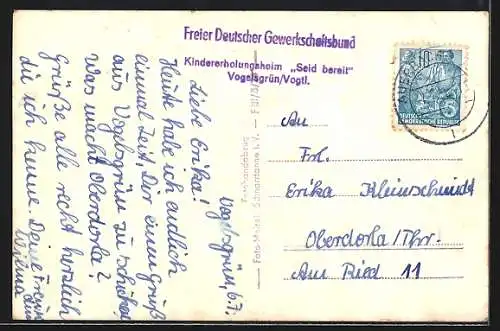 Freier Deutscher Gewerkschaftsbund
Kindererholungsheim „Seid bereit"
Vogelsgrün/Vogtl.
Vogelsgrün, 6.7.
Liebe Erika!
Heute habe ich endlich
einmal Zeit Dir einen Gruß
aus Vogelsgrün zu schicken
Was macht Oberdorla?
Grüße alle recht herzlich
die ich kenne. Deine
An
Frl.
Erika Kleinschmidt
Oberdorla/Thr.
Am Ried 11
Foto
DEUTSCHE
DEMOKRATISCHE REPUBLIK